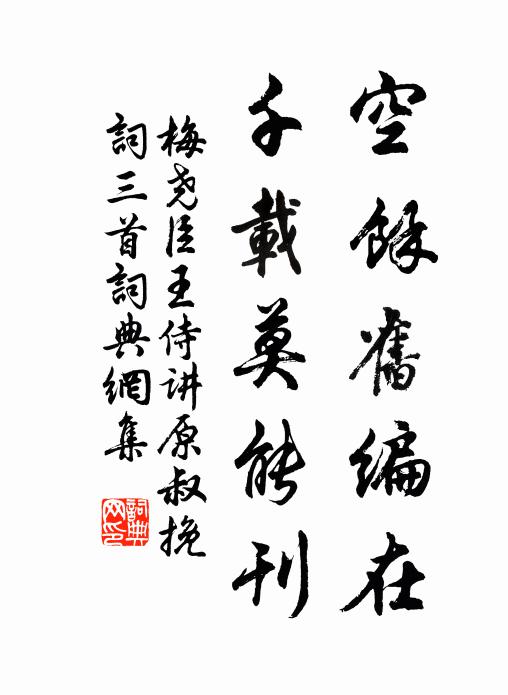 空餘舊編在
千載莫能刊
梅尧臣王侍讲原叔挽
詞三首詞典網集
詞典网印